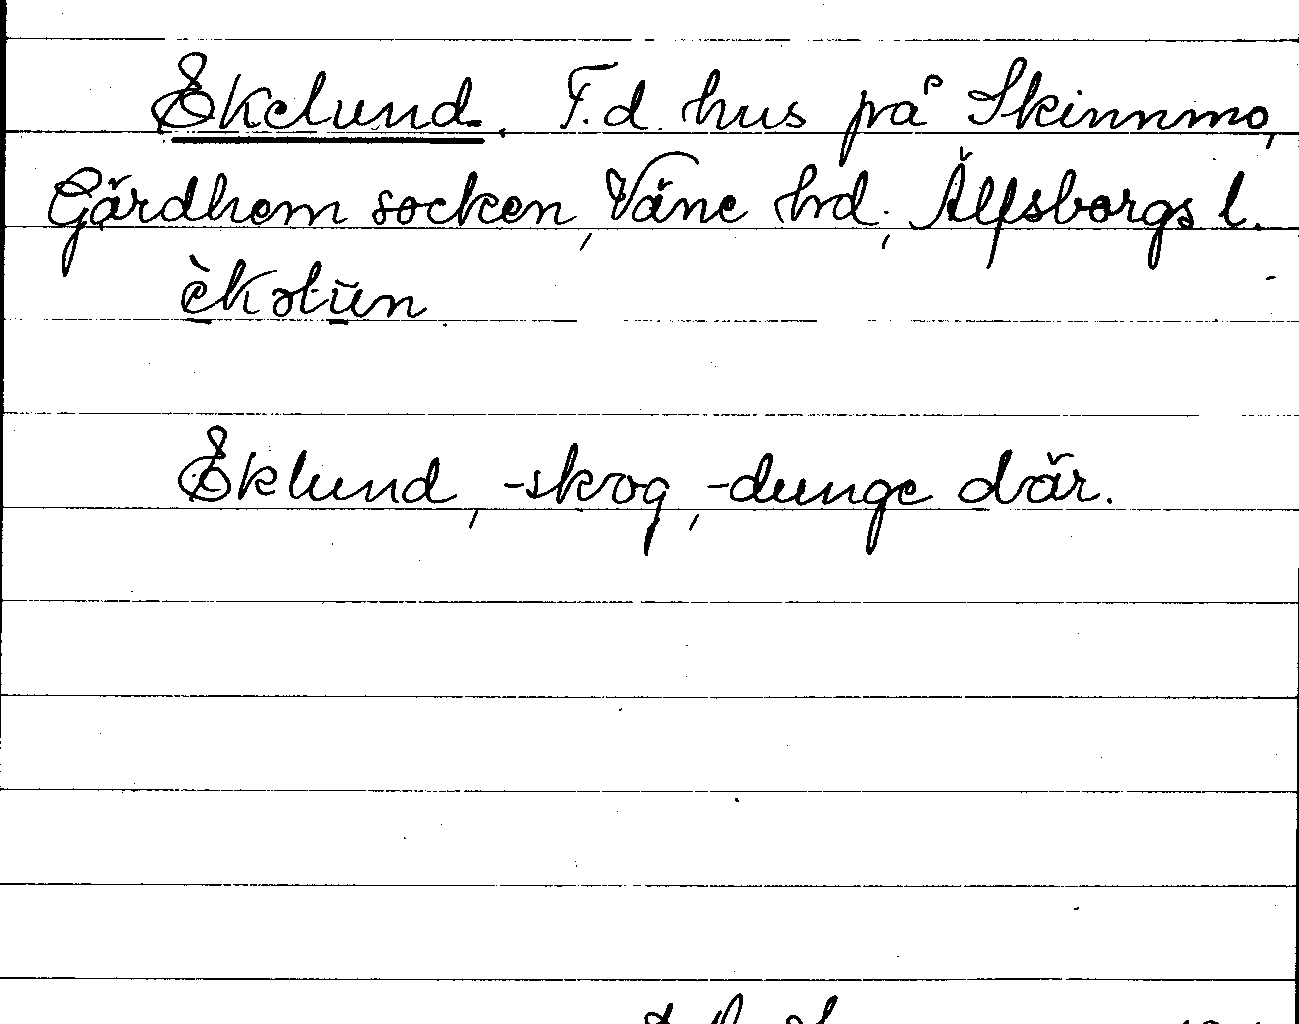 Ekelund. F.d. hus på Skinnmo,
Gärdhem socken, Väne hrd, Älfsborgs l.
èkəlūn
Eklund, -skog, -dunge där.